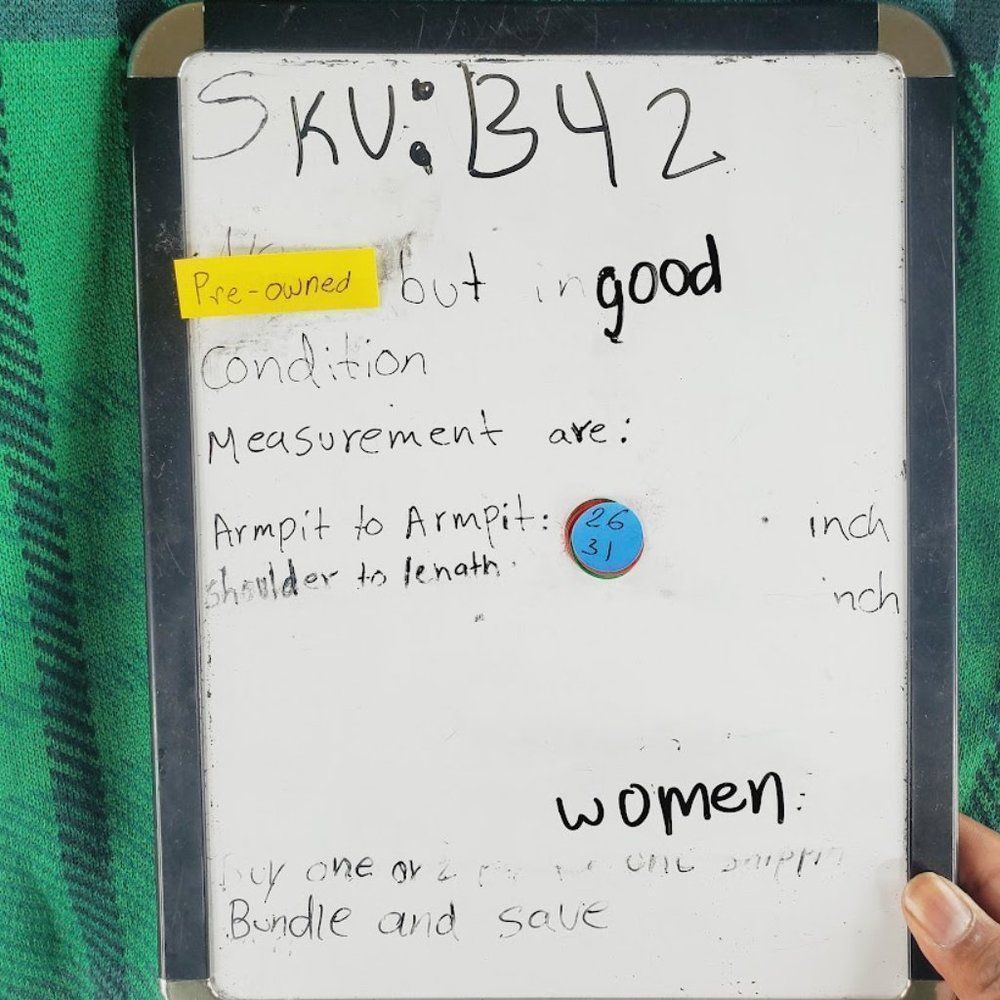 SKU: B42
Pre-owned but in good
Condition
Measurement are:
Armpit to Armpit: 26 inch
shoulder to lenath 31 nch
women:
Buy one or 2 one shippin
Bundle and save